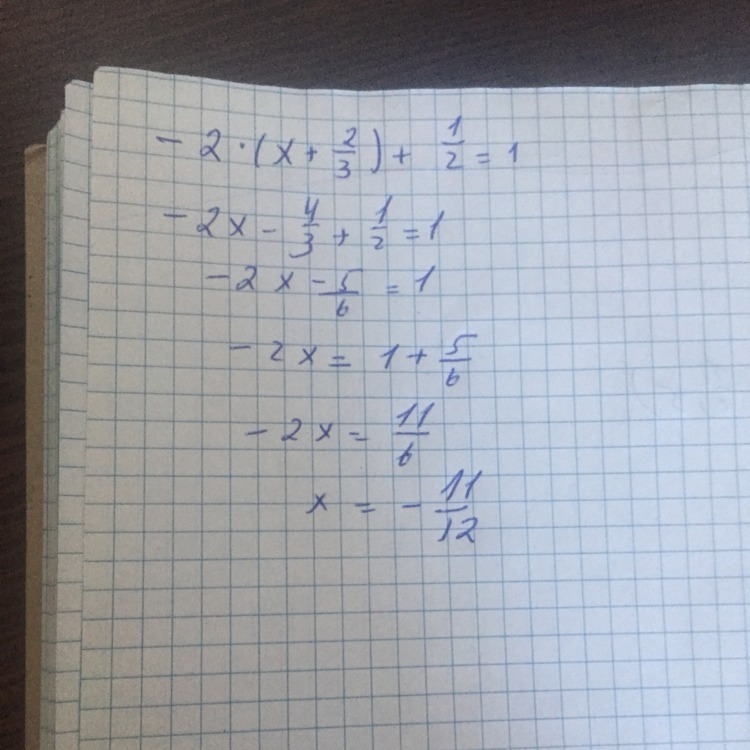 -2·(x+2/3)+1/2=1
-2x-4/3+1/2=1
-2x-5/6=1
-2x=1+5/6
-2x=11/6
x=-11/12